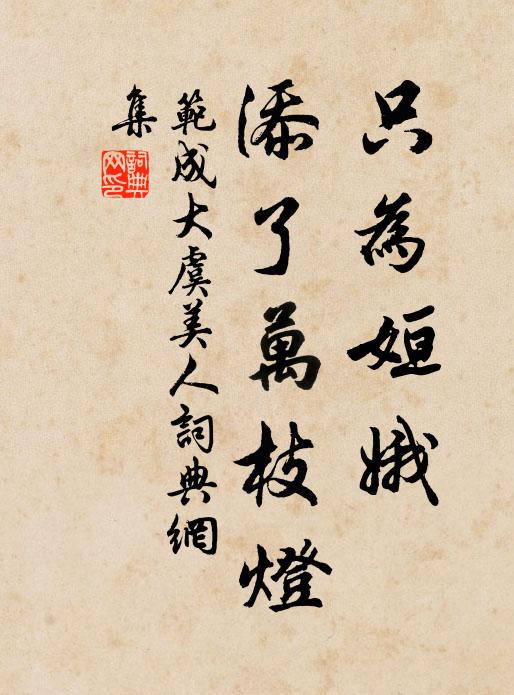 只為姮娥
添了萬枝燈
範成大虞美人詞典網
集
詞典
网印